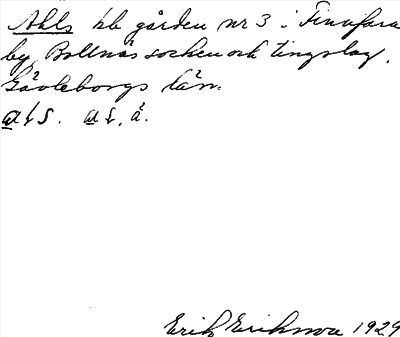 Ahls bb gården nr 3 i Finnfara
by, Bollnäs socken och tingslag,
Gävleborgs län.
Erik Eriksson 1929